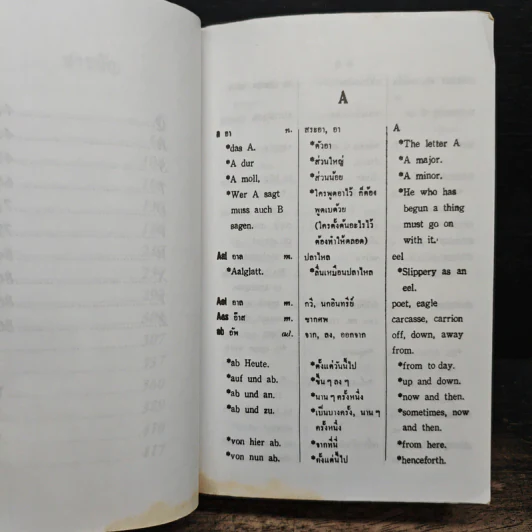 A
a อา n. สระอา, อา A
*das A. *ตัวอา *The letter A
*A dur *ส่วนใหญ่ *A major.
*A moll. *ส่วนน้อย *A minor.
*Wer A sagt *ใครพูดอาไว้ ก็ต้อง *He who has
muss auch B พูดเบด้วย begun a thing
sagen. (ใครตั้งต้นอะไรไว้ must go on
ต้องทำให้ตลอด) with it.
Aal อาล m. ปลาไหล eel
*Aalglatt. *ลื่นเหมือนปลาไหล *Slippery as an
eel.
m. กวี, นกอินทรีย์ poet, eagle
Aas อ๊าส m. ซากศพ carcasse, carrion
ab อั๊พ ad. จาก, ลง, ออกจาก off, down, away
from.
*ab Heute. *ตั้งแต่วันนี้ไป *from to day.
*auf und ab. *ขึ้น ๆ ลง ๆ *up and down.
*ab und an. *นาน ๆ ครั้งหนึ่ง *now and then.
*ab und zu. *เป็นบางครั้ง, นาน ๆ *sometimes, now
ครั้งหนึ่ง and then.
*von hier ab. *จากที่นี่ *from here.
*von nun ab. *ตั้งแต่นี้ไป *henceforth.